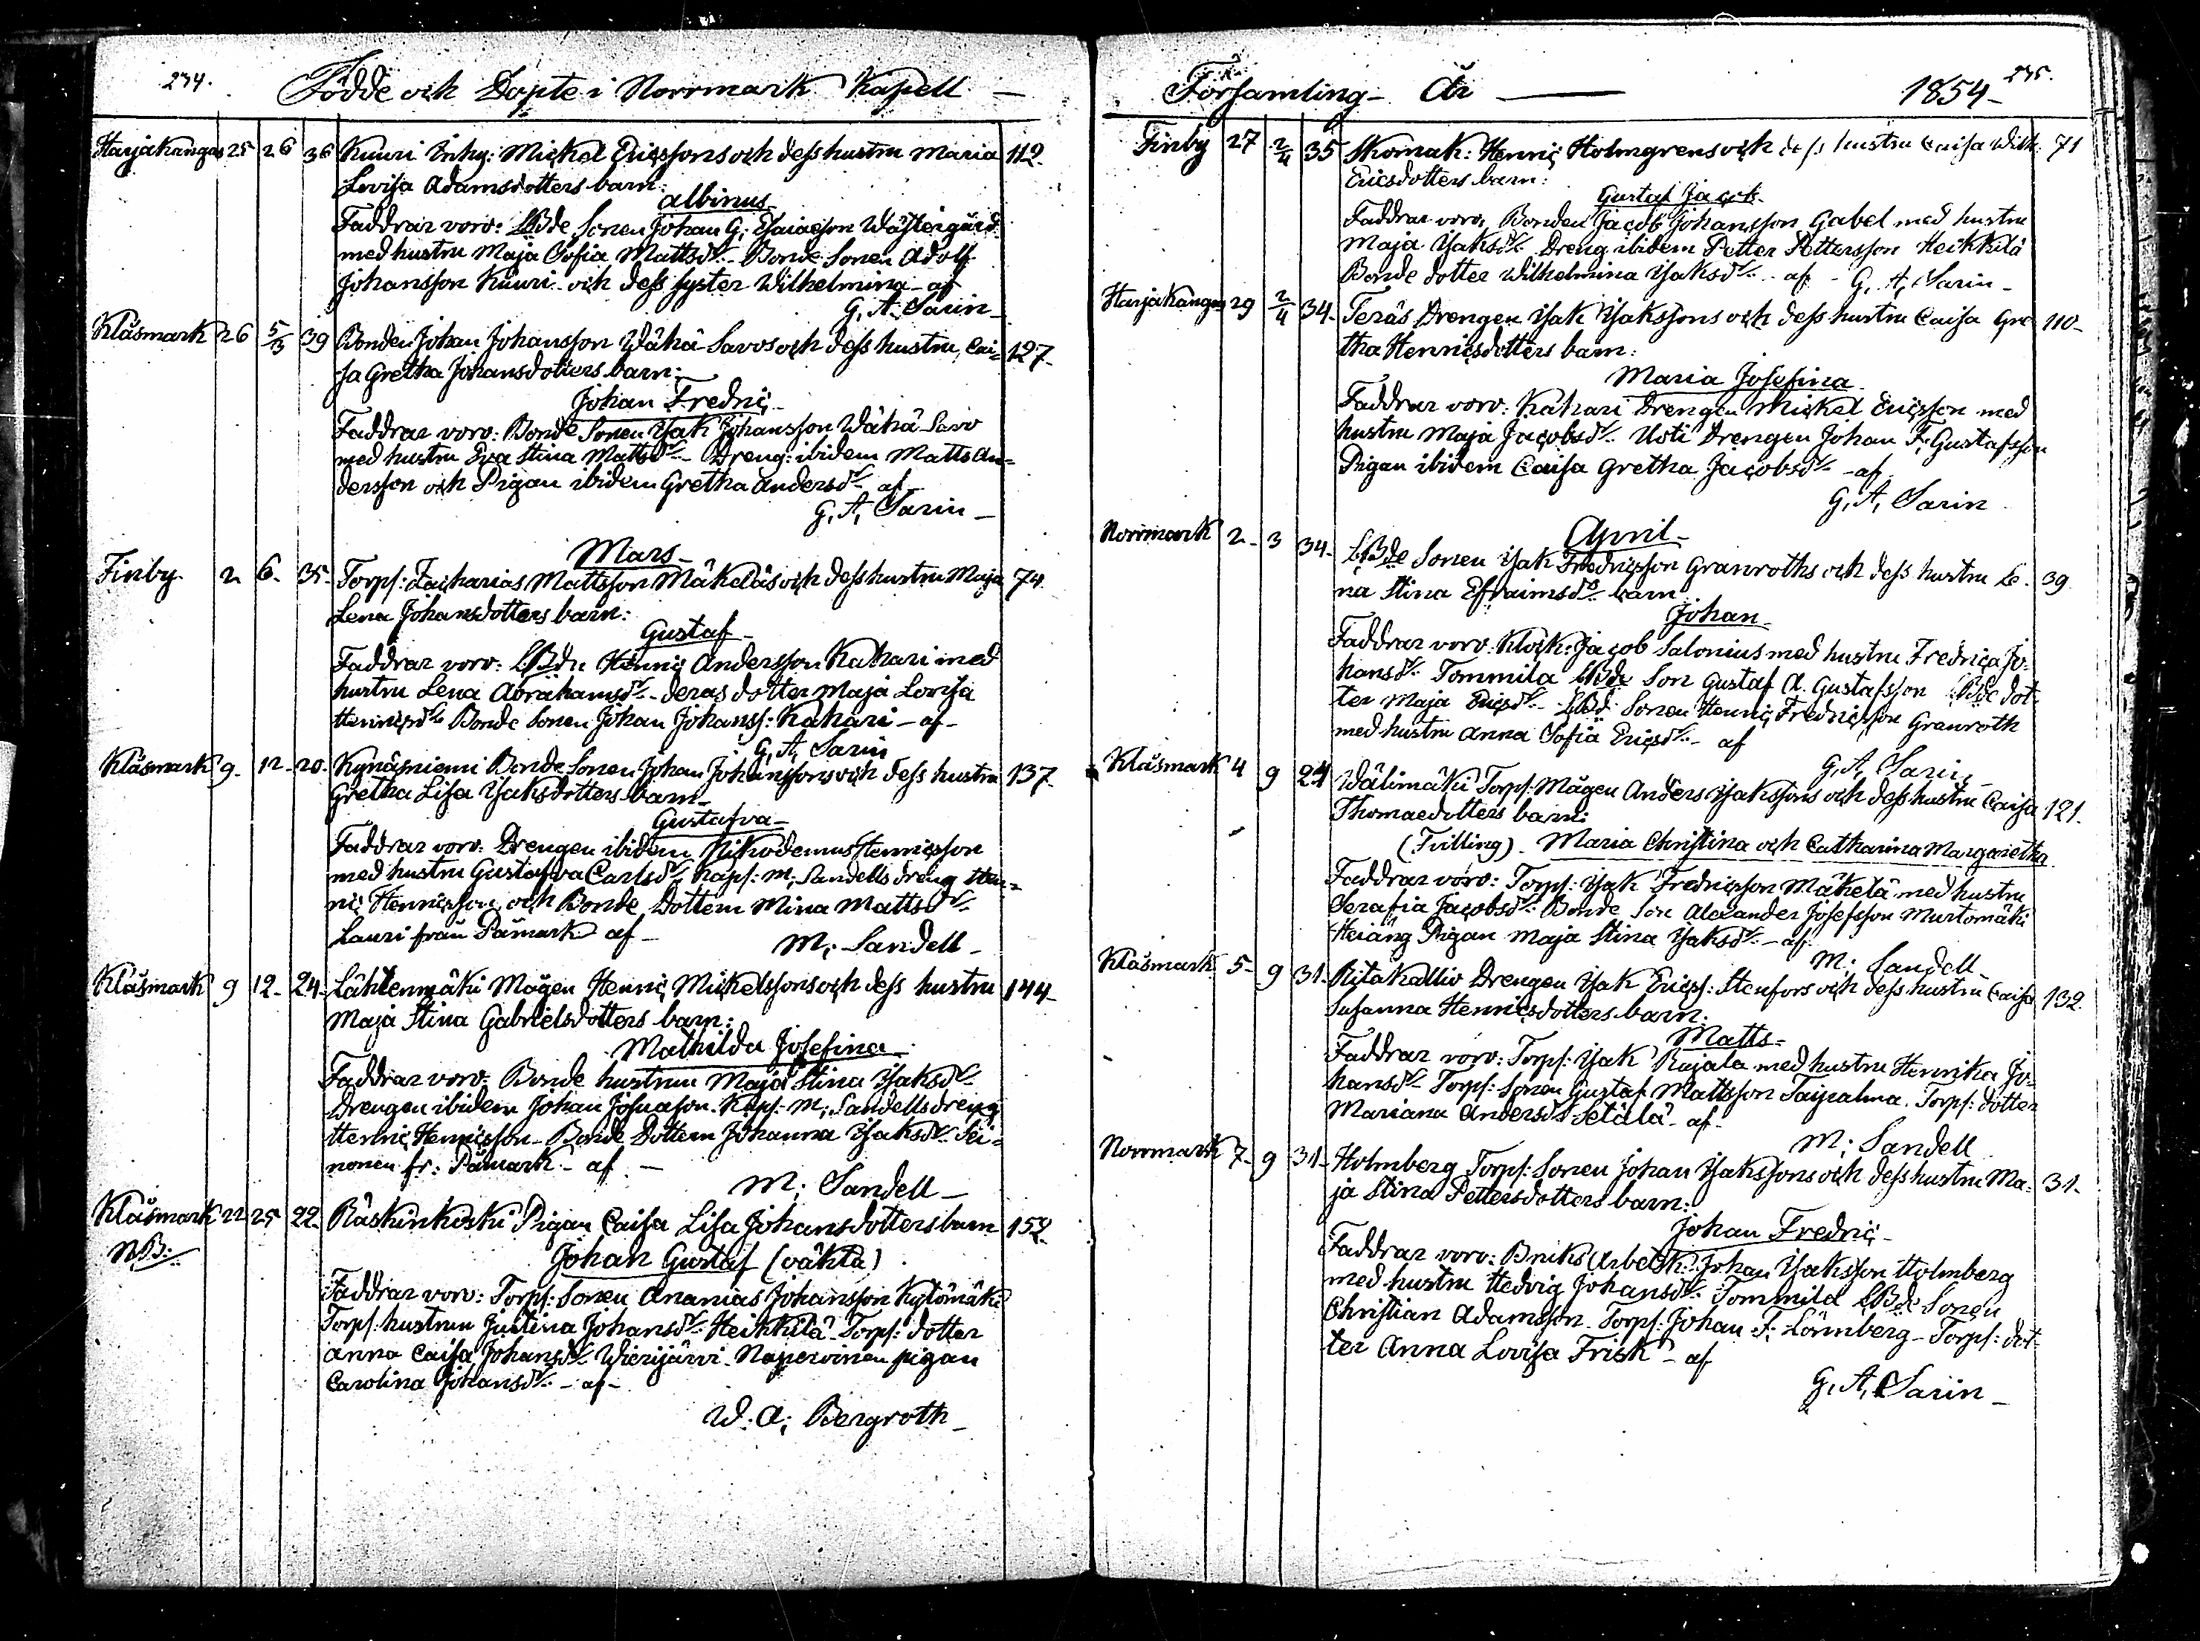 234.
Födde och Döpte i Norrmark Kapell
Harjakangas 25 26 36 Kuuri Inhy: Mickel Ericssons och dess hustru Maria 112.
Lovisa Adamsdotters barn:
Albinus
Faddrar voro: LBde Sonen Johan G: Esaiaeson Wästergård
med hustru Maja Sofia Mattsdr. Bonde Sonen Adolf
Johansson Kuuri och dess syster Wilhelmina af
G. A. Sarin
Klåsmark 26 5/3 39 Bonden Johan Johansson Wähä Savos och dess hustru Cai= 127.
sa Gretha Johansdotters barn:
Johan Fredric
Faddrar voro: Bonde Sonen Isak Johansson Wähä Savo
med hustru Eva Stina Mattsdr. Dreng: ibidem Matts An=
dersson och Pigan ibidem Gretha Andersdr. af
G. A. Sarin
Mars
Finby 2 6. 35. Torp: Zacharias Mattsson Mäkeläs och dess hustru Maja 74.
Lena Johansdotters barn:
Gustaf
Faddrar voro: LBdn Henric Andersson Kahari med
hustru Lena Abrahamsdr. deras dotter Maja Lovisa
Henricsdr. Bonde Sonen Johan Johanss: Kahari af
G. A. Sarin
Klåsmark 9. 12. 20. Kynäsniemi Bonde Sonen Johan Johanssons och dess hustru 137.
Gretha Lisa Isaksdotters barn
Gustafva
Faddrar voro: Drengen ibidem Nikodemus Henricsson
med hustru Gustafva Carlsdr. Kapl: M; Sandells dreng Hen=
ric Henricsson och Bonde Dottern Mina Mattsdr.
Lauri från Påmark af
M; Sandell
Klåsmark 9 12. 24. Lähtenmäki Mågen Henric Mickelssons och dess hustru 144.
Maja Stina Gabrielsdotters barn:
Mathilda Josefina
Faddrar voro: Bonde hustrun Maja Stina Isaksdr.
Drengen ibidem Johan Josuason. Kapl: M; Sandells dreng
Henric Henricsson. Bonde Dottern Johanna Isaksdr. Lei=
nonen fr: Påmark. af
M; Sandell
Klåsmark 22 25 22. Räskinkoski Pigan Caisa Lisa Johansdotters barn 152.
NB:
Johan Gustaf (oäkta)
Faddrar voro: Torp: Sonen Ananias Johansson Kytömäki
Torp: hustrun Justina Johansdr. Heikkilä Torp: dotter
Anna Caisa Johansdr. Wierijärvi pigan
Carolina Johansdr. af
W. A; Bergroth
235.
Församling År 1854
Finby 27 2/4 35 Skomak: Henric Holmgrens och dess hustru Caisa Wilh: 71
Ericsdotters barn:
Gustaf Jacob
Faddrar voro, Bonden Jacob Johansson Gabel med hustru
Maja Isaksdr. Dreng ibidem Petter Pettersson Heikkilä
Bonde dotter Wilhelmina Isaksdr. af G. A. Sarin
Harjakangas 29 2/4 34. Teräs Drengen Isak Isakssons och dess hustru Caisa Gre 110.
tha Henricsdotters barn:
Maria Josefina
Faddrar voro: Kahari Drengen Mickel Ericsson med
hustru Maja Jacobsdr. Uoti Drengen Johan F. Gustafsson
Pigan ibidem Caisa Gretha Jacobsdr. af
G. A. Sarin
April
Norrmark 2. 3 34. LBde Sonen Isak Fredricsson Granroths och dess hustru Le. 39
na Stina Efraimsdr. barn
Johan
Faddrar voro: Klock: Jacob Salonius med hustru Fredrica Jo=
hansdr. Tommila LBde Son Gustaf A. Gustafsson LBde dot=
ter Maja Ericsdr. LBd: Sonen Henric Fredricsson Granroth
med hustru Anna Sofia Ericsdr. af
G. A. Sarin
Klåsmark 4 9 24 Wälimäki Torp: Mågen Anders Isakssons och dess hustru Caisa 121.
Thomaedotters barn:
(Tvilling). Maria Christina och Catharina Margaretha
Faddrar voro: Torp: Isak Fredricsson Mäkelä med hustru
Serafia Jacobsdr. Bonde Son Alexander Josefsson Murtomäki
Heiäng Pigan Maja Stina Isaksdr. af
M; Sandell
Klåsmark 5. 9 31. Ritakallio Drengen Isak Erics: Stenfors och dess hustru Caisa 132.
Susanna Henricsdotters barn.
Matts
Faddrar voro: Torp: Isak Rajala med hustru Henrika Jo=
hansdr. Torp: Sonen Gustaf Mattsson Taipalma. Torp: dotter
Mariana Andersdr Setälä af
M; Sandell
Norrmark 7. 9 31. Holmberg Torp: Sonen Johan Isakssons och dess hustru Ma= 31.
ja Stina Pettersdotters barn:
Johan Fredric
Faddrar voro: Bruks Arbetsk: Johan Isaksson Holmberg
med hustru Hedvig Johansdr. Tommila LBde Sonen
Christian Adamsson. Torp: Johan F: Lönnberg. Torp: dot=
ter Anna Lovisa Frisk af
G. A. Sarin